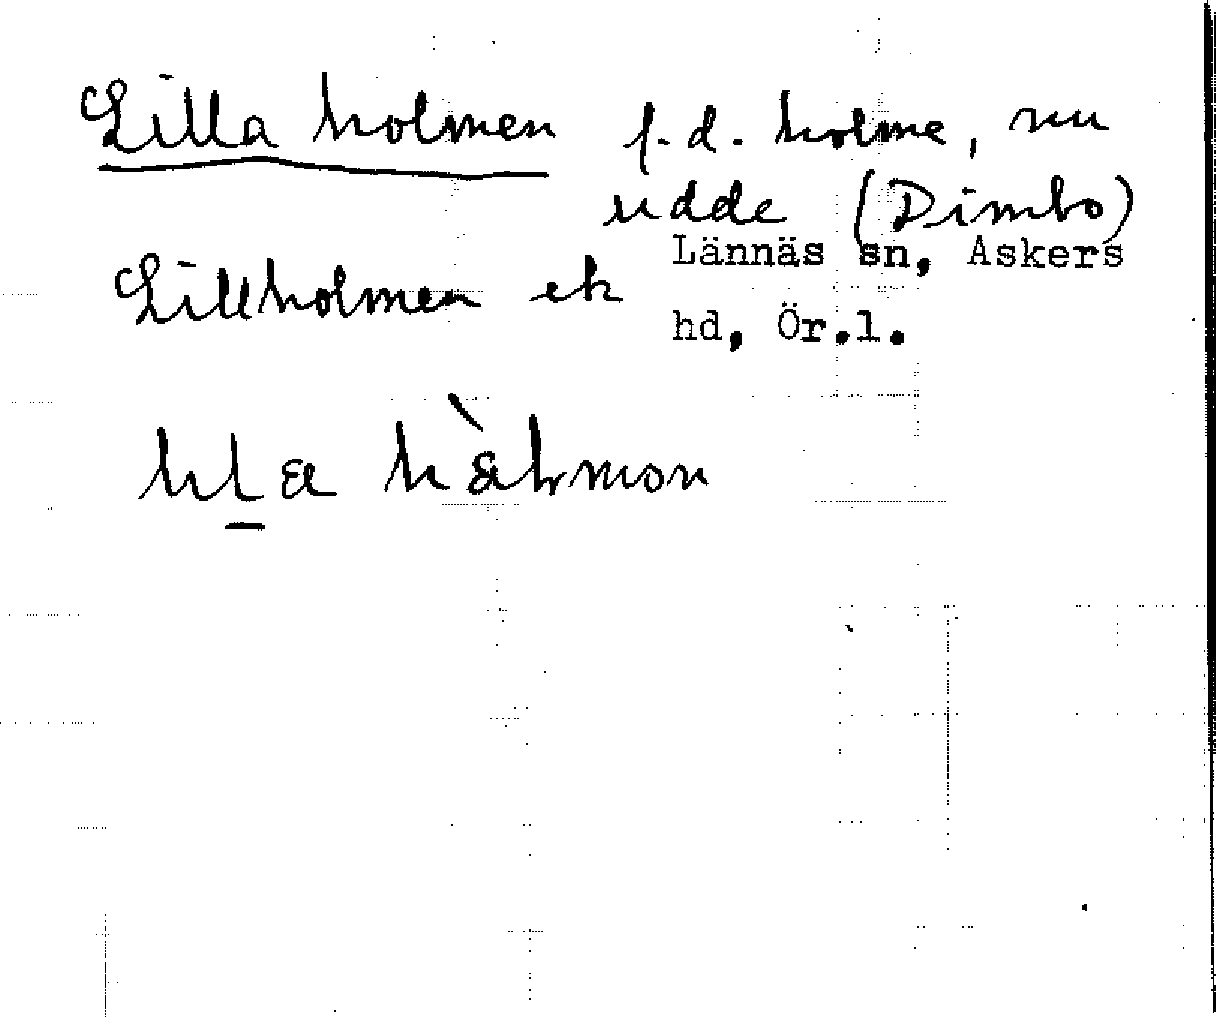 Lilla holmen f.d. holme, nu
udde (Dimbo)
Lännäs sn, Askers
Lillholmen ek
hd, Ör.l.